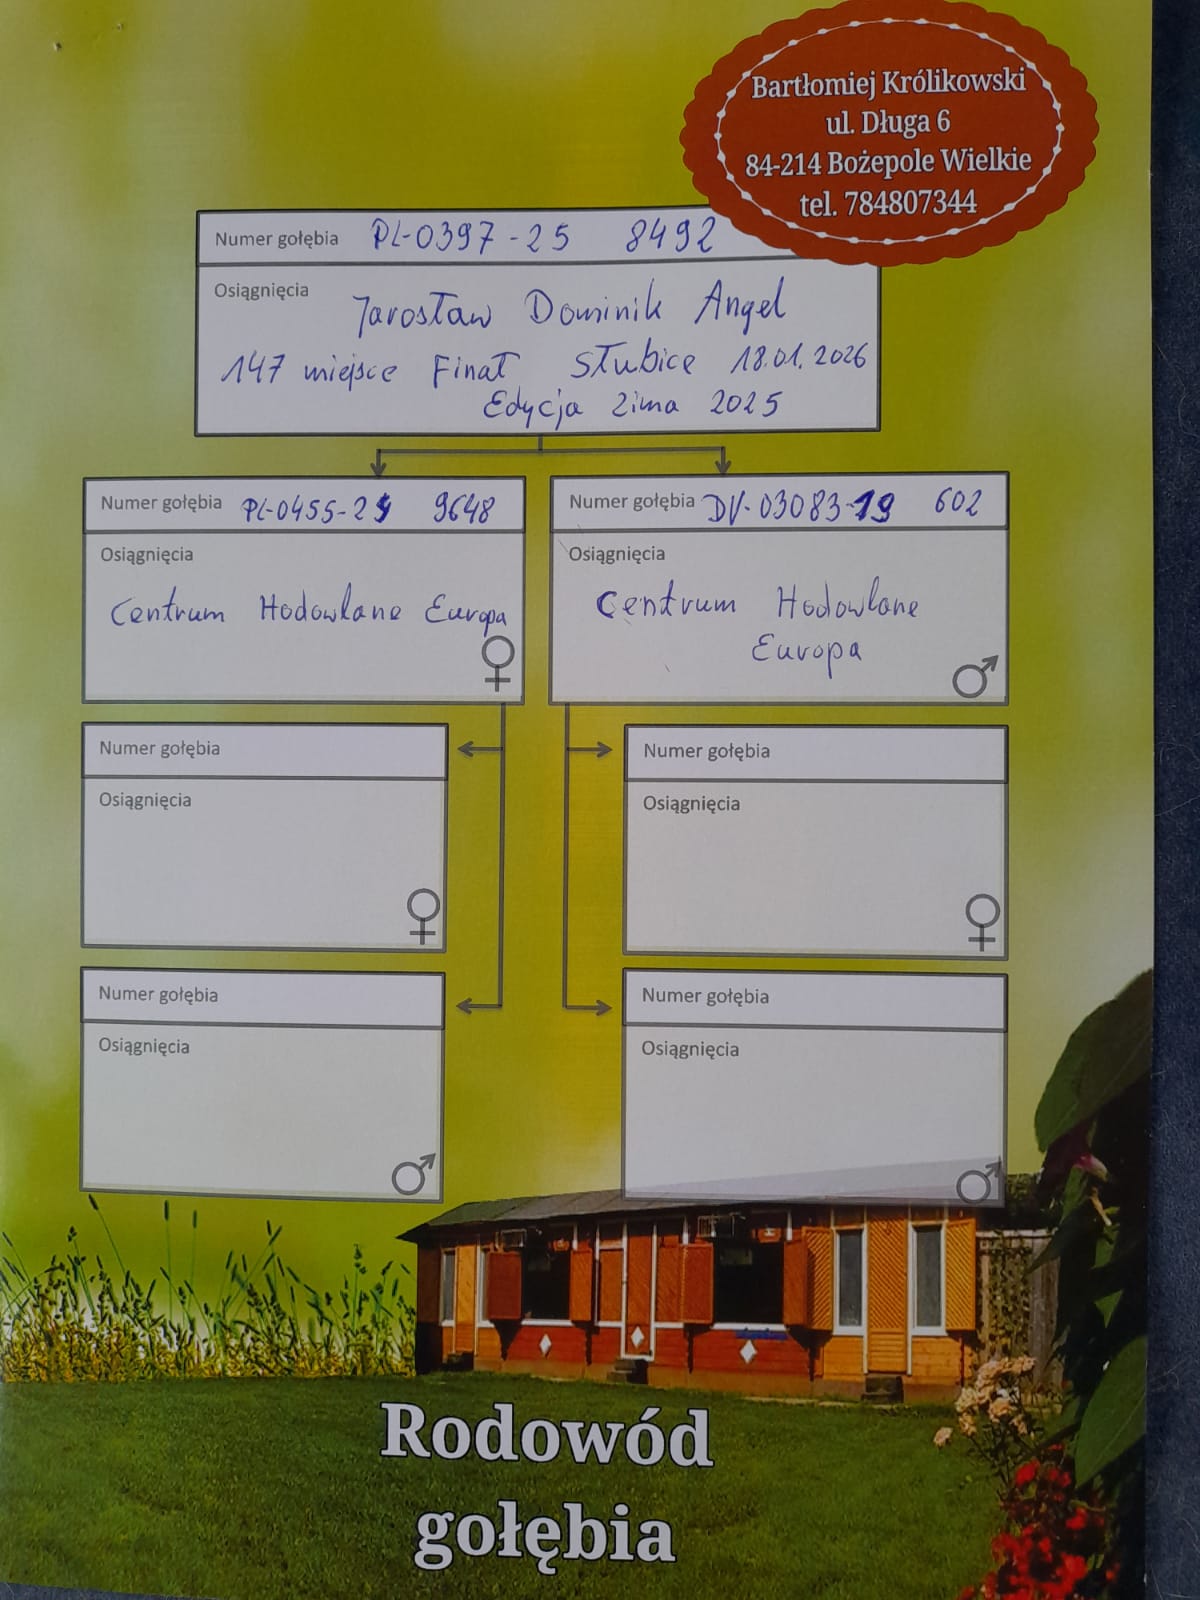 Bartłomiej Królikowski
ul. Długa 6
84-214 Bożepole Wielkie
tel. 784807344
Numer gołębia PL-0397-25 8492
Osiągnięcia
Jarosław Dominik Angel
147 miejsce Finał Słubice 18.01.2026
Edycja Zima 2025
Numer gołębia PL-0455- 9648
Osiągnięcia
Centrum Hodowlane Europa
Numer gołębia DV-03083-19 602
Osiągnięcia
Centrum Hodowlane
Europa
Numer gołębia
Osiągnięcia
Numer gołębia
Osiągnięcia
Numer gołębia
Osiągnięcia
Numer gołębia
Osiągnięcia
Rodowód
gołębia